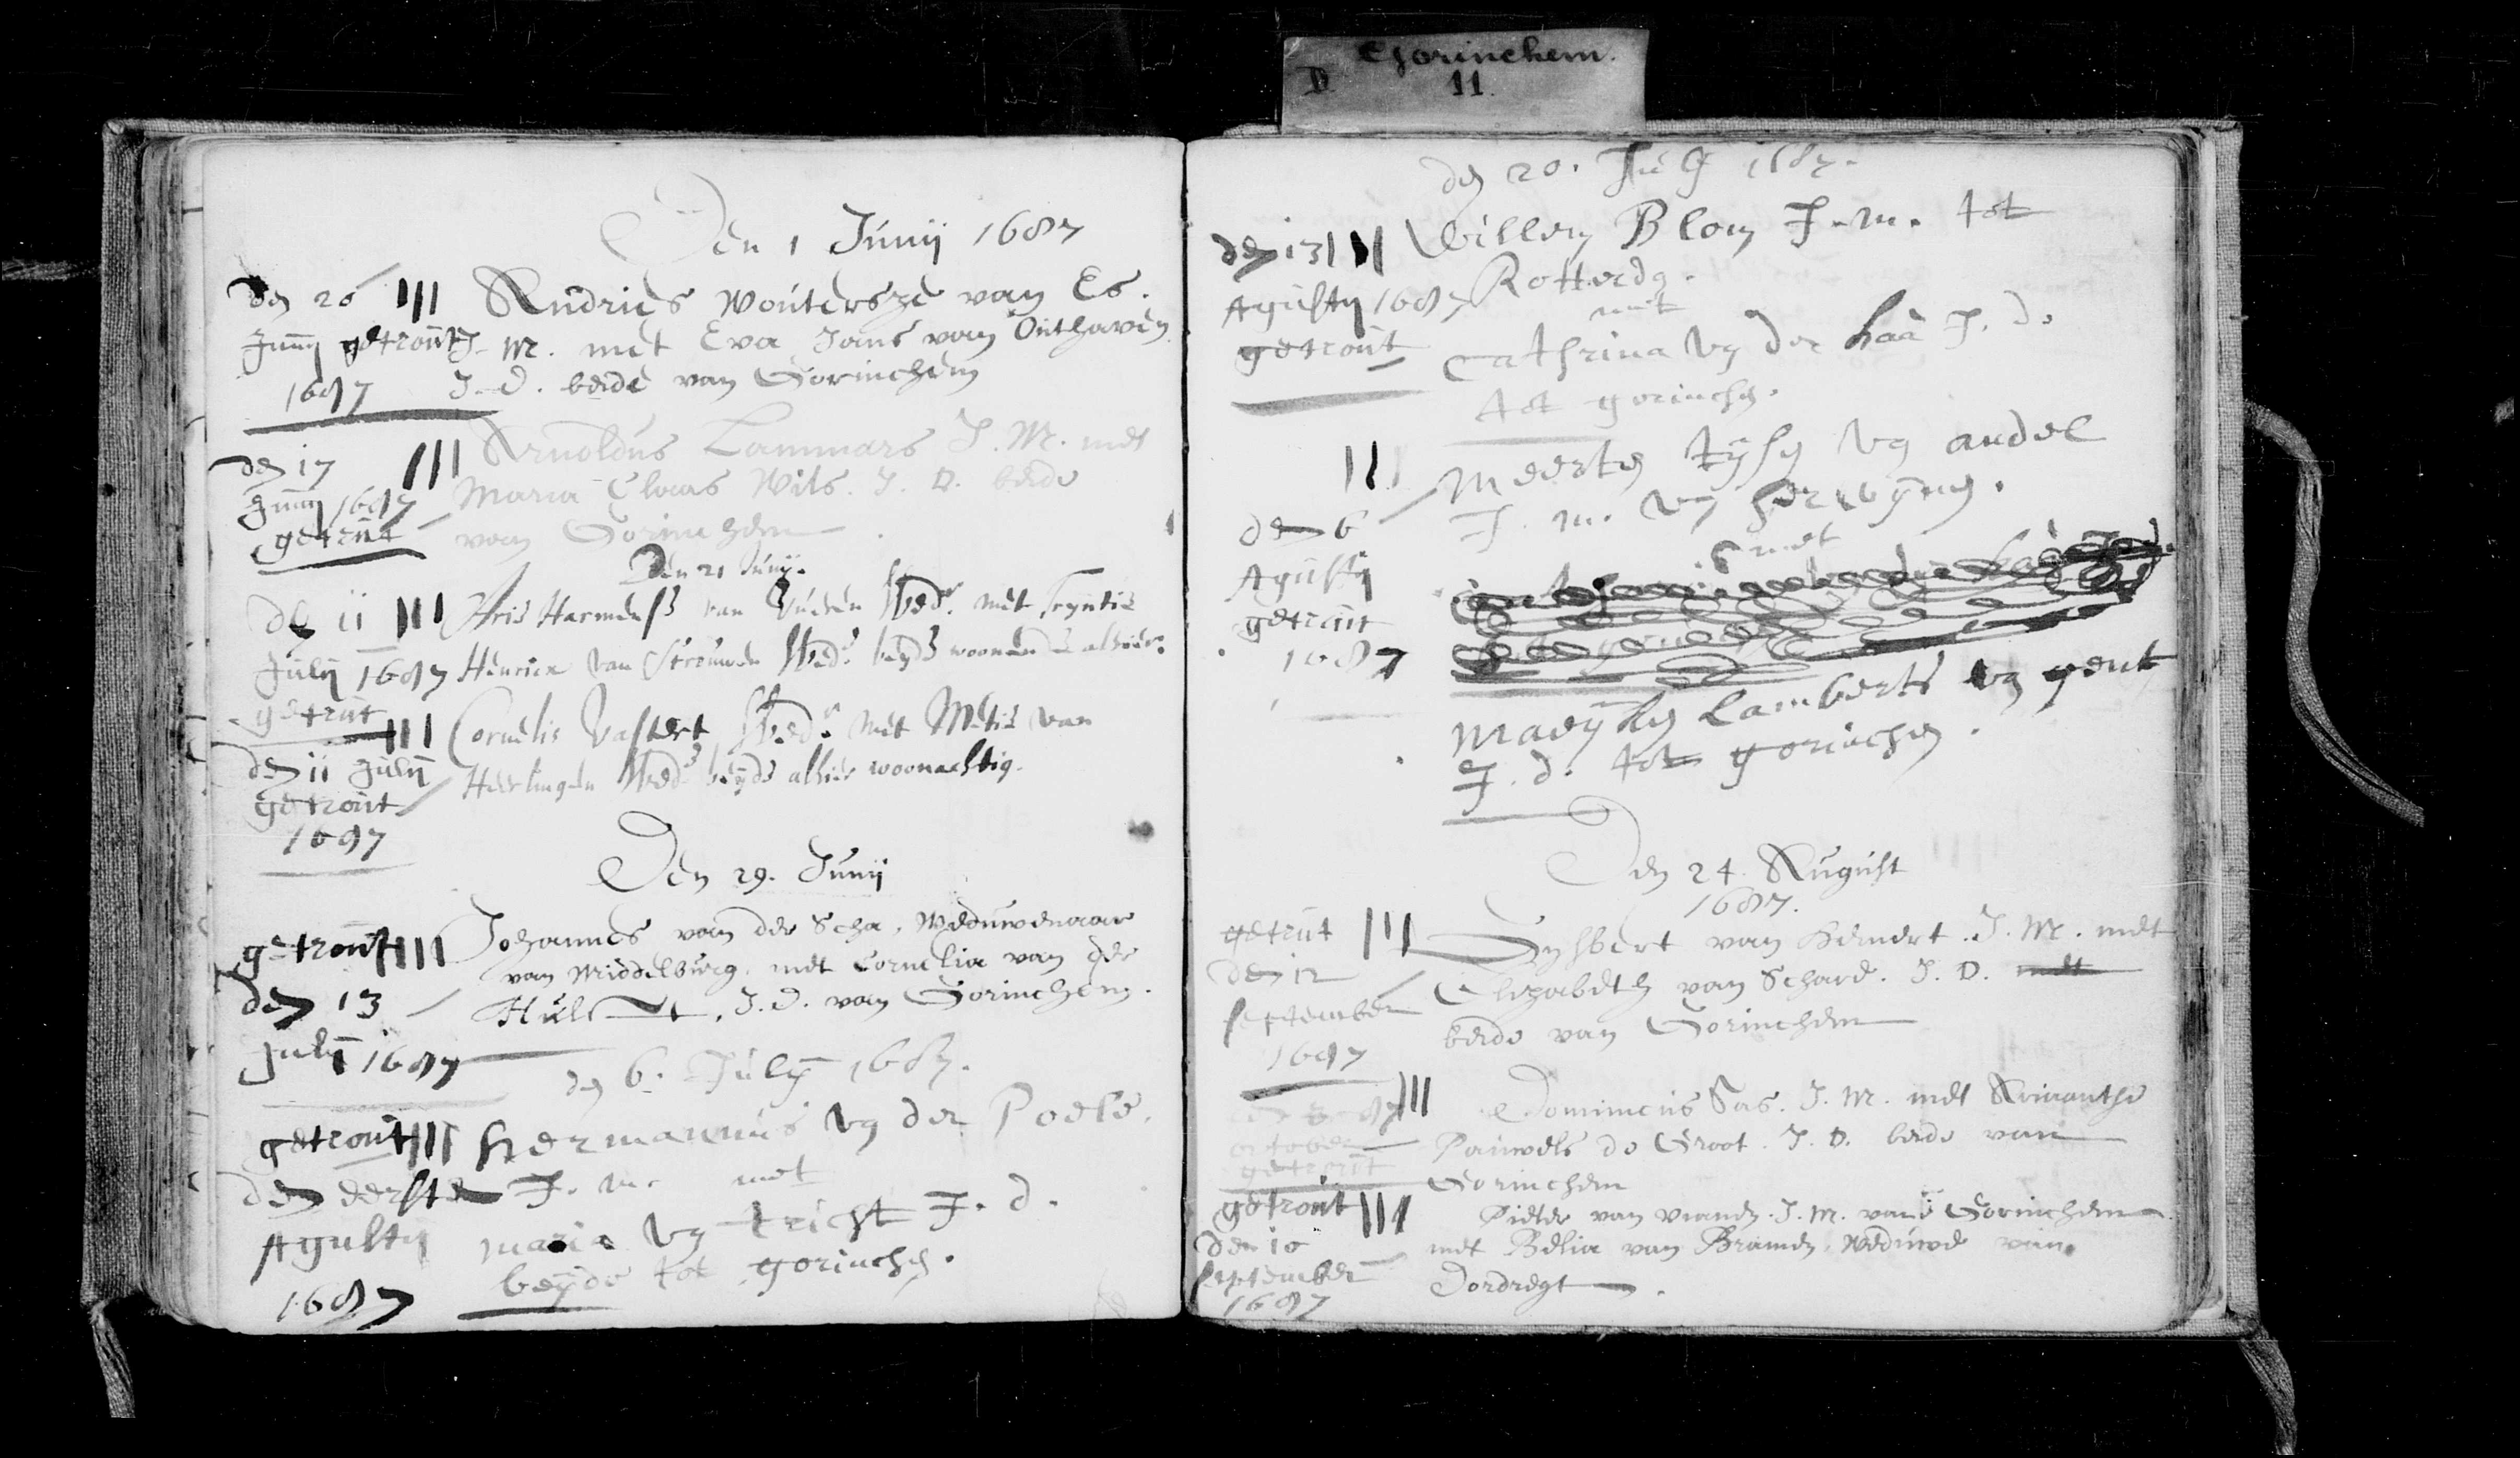 Gorinchem.
D 11
Den 1 Junij 1687
den 26
Junij getrout
1687
Andries Woutersze van Es.
J. M. met Eva Jans van Outhaven
J. D. beide van Gorinchem
den 17
Junij 1687
getrut
Arnoldus Lammars J. M. met
Maria Claas Wils. J. D. beide
van Gorinchem
Den 21 Junij.
den 11
Julij 1687
getrut
Aris Harmensz van Wedr. met Tryntie
Henricx van Strouwen Wede. beyde woonende alhier.
den 11 Julij
getrout
1687
Cornelis Vastert Wedr. met Metie van
Heerlingen Wede beyde alhier woonachtig.
Den 29. Junij
getrout
den 13
Julij 1687
Johannes van der Scha, Weduwenaar
van Middelburg, met Cornelia van der
Hulst, J. D. van Gorinchem.
den 6. Julij 1687.
getrout
den eersten
Agusty
1687
Hermannus vn der Poele.
J. m. met
maria vn tricht J. d.
beyde tot gorinchen.
den 20. July 1687.
den 13
Agusty 1687
getrout
Willem Blom J. m. tot
Rotterda.
met
Cathrina vn der haa J. d.
tot gorinchen.
den 6
Agusty
getrout
1687
Meerten tysen vn andel
J. m. vn herwynen.
met
mayken Lamberts vn gent
J. d. tot gorinchen.
Den 24. August
1687.
getrut
den 12
september
1687
Gysbert van Hemert. J. M. met
Elizabeth van Schard. J. D. met
beide van Gorinchem
october
getrout
Dominicus Sas. J. M. met
Pauwels de Groot. J. D. beide van
Gorinchem
getrout
den 10
september
1687
Pieter van Vianen. J. M. van Gorinchem
met Belia van Bramen, Weduwe van
Dordregt.